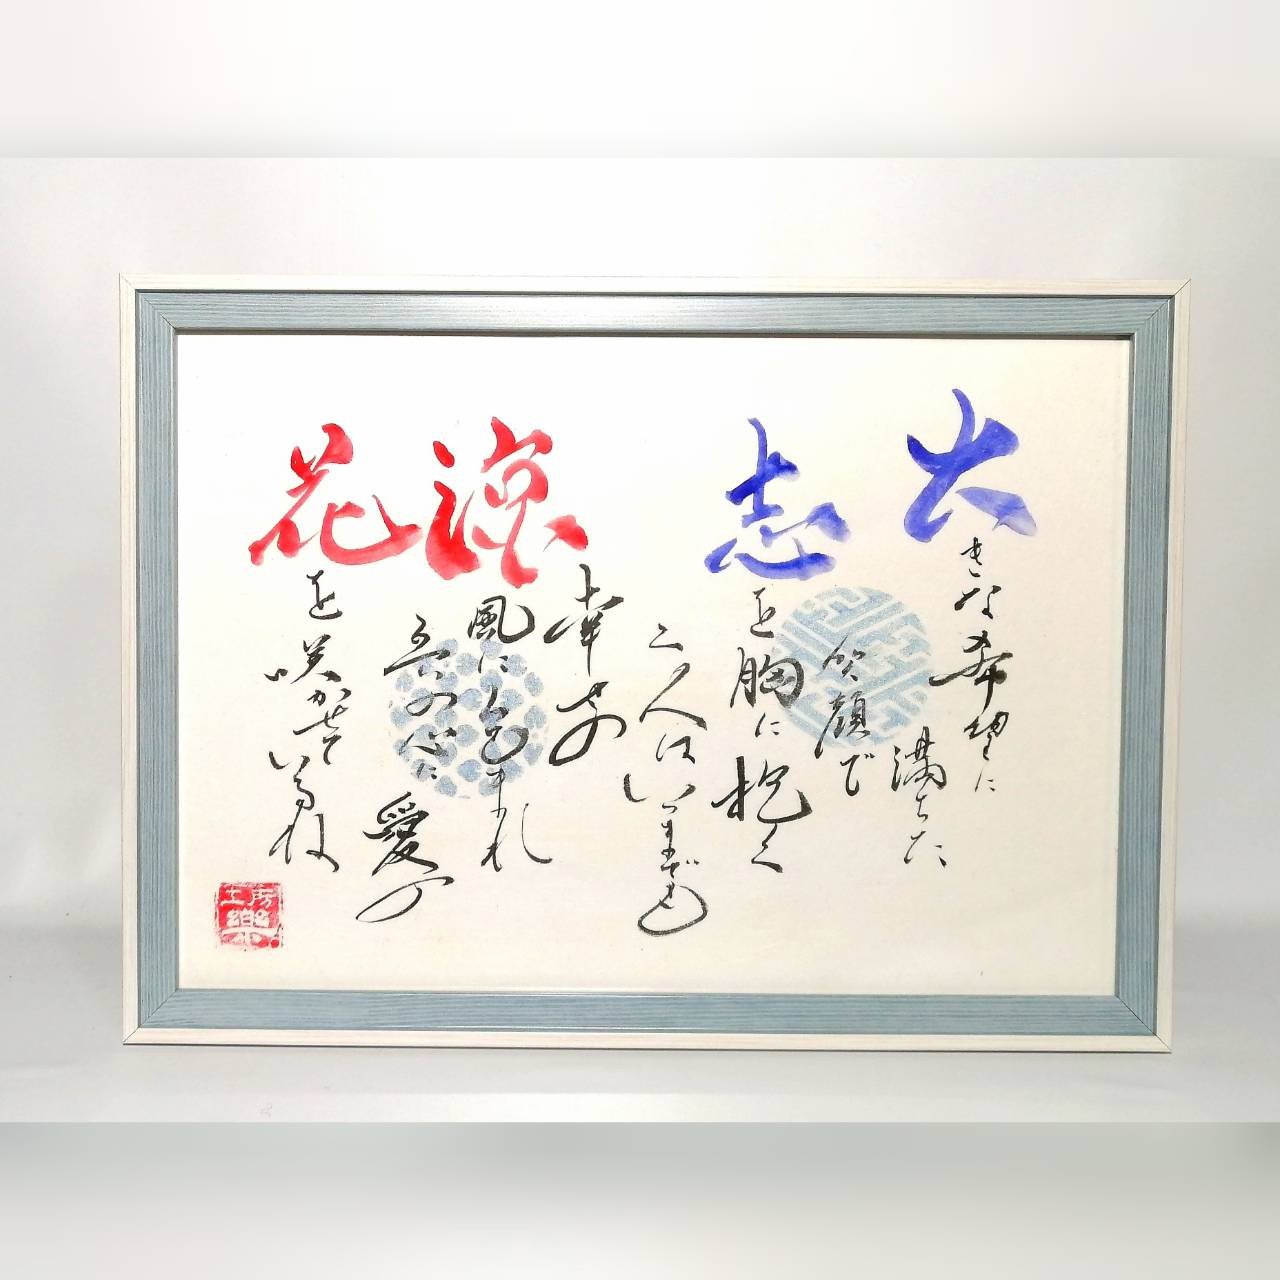 大きな希望に
満ちた
笑顔で
志を胸に抱く
二人はいつまでも
幸せの
涼風に包まれ
心に
愛の
花を咲かせて
工房
樂